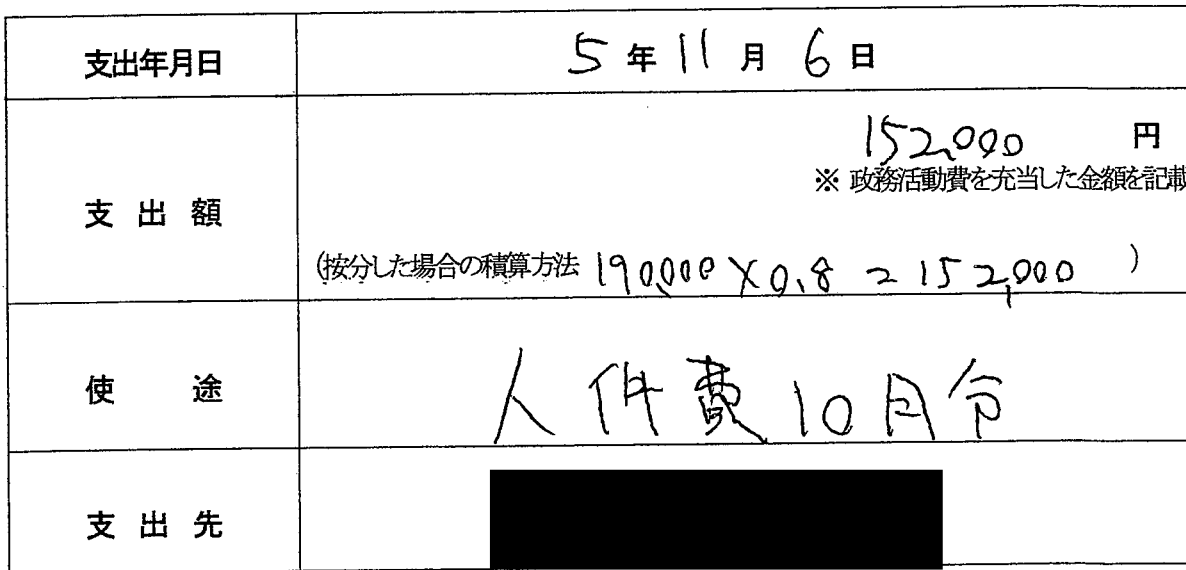 支出年月日 5年11月6日
支出額 152,000 円
※ 政務活動費を充当した金額を記載
(按分した場合の積算方法 190,000×0.8=152,000 )
使途 人件費10月分
支出先